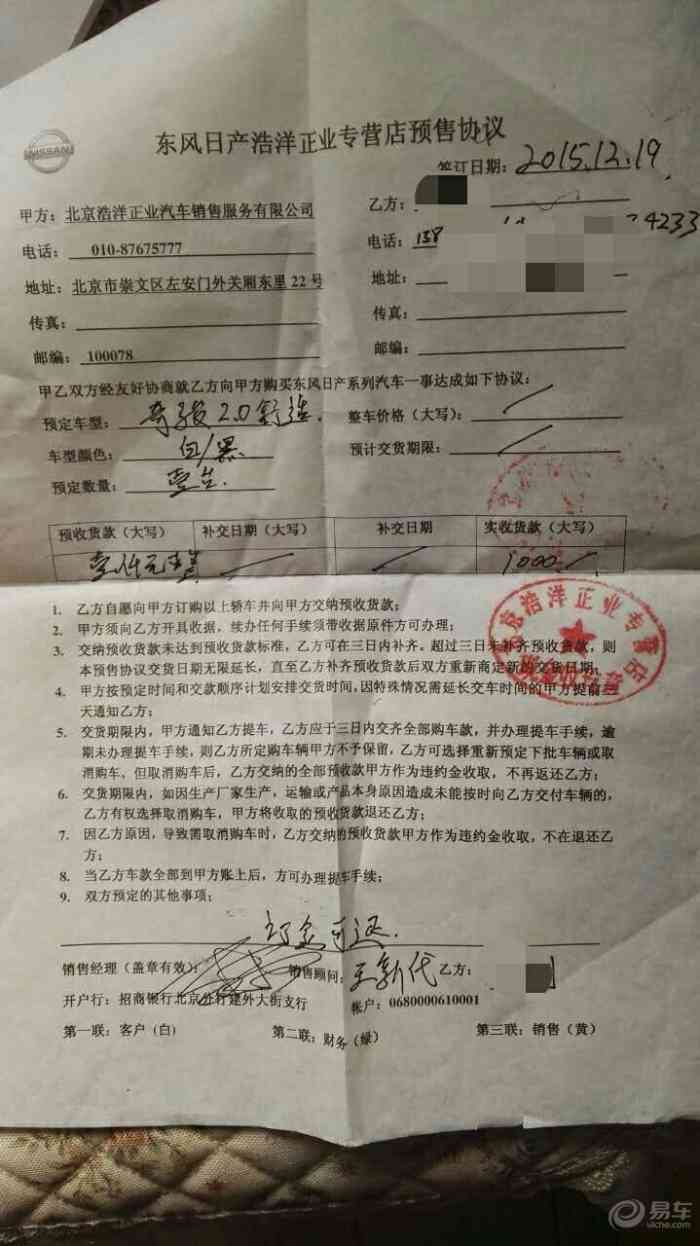 NISSAN
东风日产浩洋正业专营店预售协议
签订日期：2015.12.19
甲方：北京浩洋正业汽车销售服务有限公司
乙方：
电话：010-87675777
电话：138 4233
地址：北京市崇文区左安门外关厢东里22号
地址：
传真：
传真：
邮编：100078
邮编：
甲乙双方经友好协商就乙方向甲方购买东风日产系列汽车一事达成如下协议：
预定车型：奇骏2.0舒适.
整车价格（大写）：/
车型颜色：白/黑
预计交货期限：/
预定数量：壹台.
预收货款（大写） 补交日期（大写） 补交日期 实收货款（大写）
壹仟元整 / / 1000./
1. 乙方自愿向甲方订购以上轿车并向甲方交纳预收货款；
2. 甲方须向乙方开具收据，续办任何手续须带收据原件方可办理；
3. 交纳预收货款未达到预收货款标准，乙方可在三日内补齐。超过三日未补齐预收货款，则
本预售协议交货日期无限延长，直至乙方补齐预收货款后双方重新商定新的交货日期。
4. 甲方按预定时间和交款顺序计划安排交货时间，因特殊情况需延长交车时间的甲方提前三
天通知乙方；
5. 交货期限内，甲方通知乙方提车，乙方应于三日内交齐全部购车款，并办理提车手续，逾
期未办理提车手续，则乙方所定购车辆甲方不予保留，乙方可选择重新预定下批车辆或取
消购车。但取消购车后，乙方交纳的全部预收款甲方作为违约金收取，不再返还乙方；
6. 交货期限内，如因生产厂家生产，运输或产品本身原因造成未能按时向乙方交付车辆的，
乙方有权选择取消购车，甲方将收取的预收货款退还乙方；
7. 因乙方原因，导致需取消购车时，乙方交纳的预收货款甲方作为违约金收取，不在退还乙
方；
8. 当乙方车款全部到甲方账上后，方可办理提车手续；
9. 双方预定的其他事项；
订金可退.
销售经理（盖章有效）： 销售顾问：王新代 乙方：
开户行：招商银行北京分行建外大街支行 帐户：0680000610001
第一联：客户（白） 第二联：财务（绿） 第三联：销售（黄）
北京浩洋正业专营店
易车
yiche.com